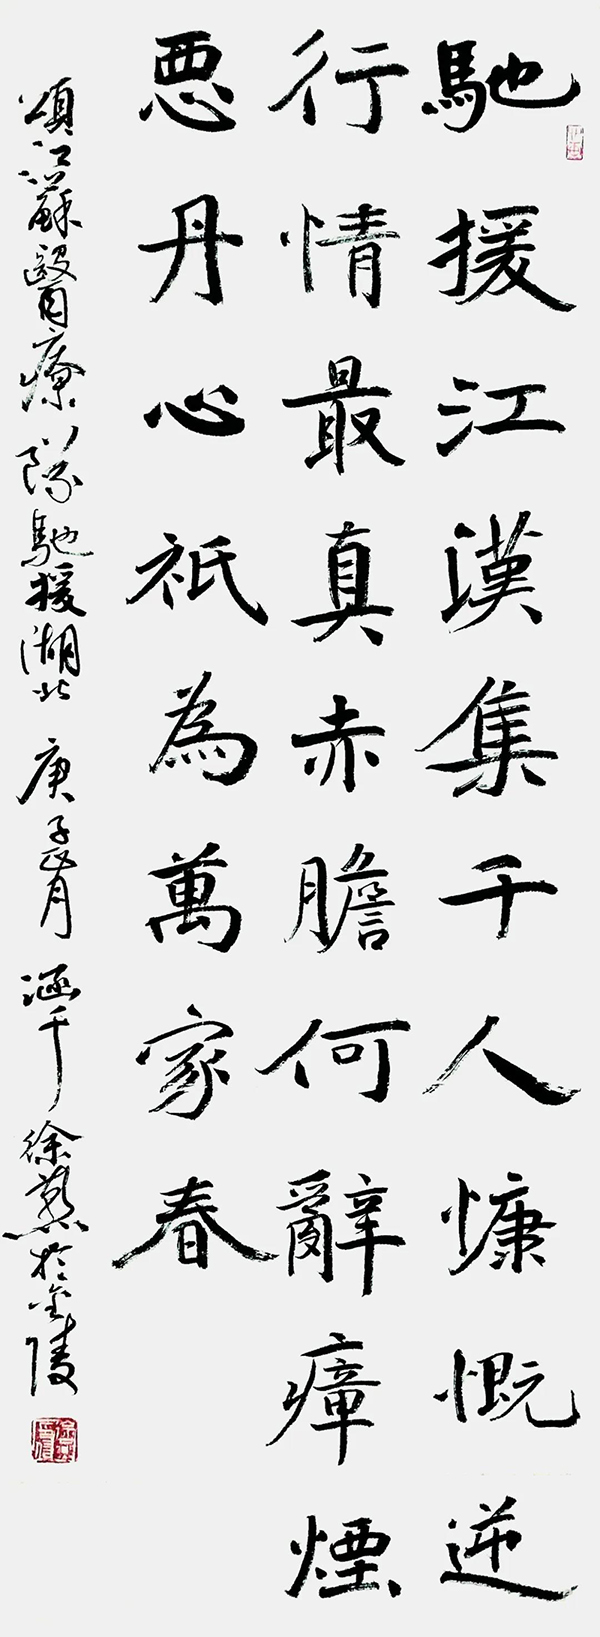 馳援江漢集千人慷慨逆
行情最真赤膽何辭瘴煙
惡丹心祇為萬家春
頌江蘇醫療隊馳援湖北 庚子正月 涵千 徐燕於金陵